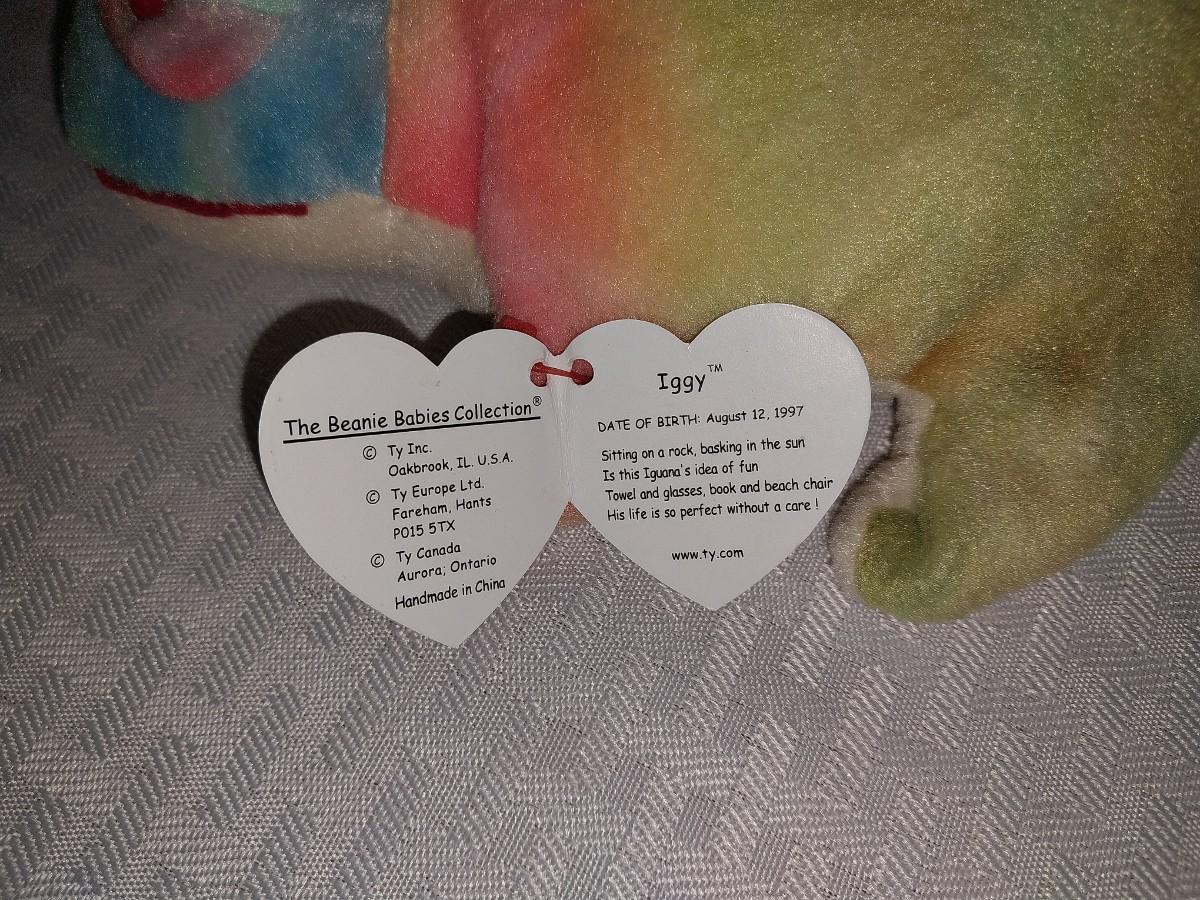 The Beanie Babies Collection®
© Ty Inc.
Oakbrook, IL. U.S.A.
© Ty Europe Ltd.
Fareham, Hants
PO15 5TX
© Ty Canada
Aurora; Ontario
Handmade in China
Iggy™
DATE OF BIRTH: August 12, 1997
Sitting on a rock, basking in the sun
Is this Iguana's idea of fun
Towel and glasses, book and beach chair
His life is so perfect without a care !
www.ty.com